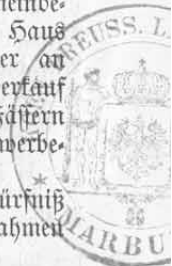 meinbe-
Haus
er an
erkauf
Fässern
werbe-
ürfniß
ahmen
REUSS. L
MARBU